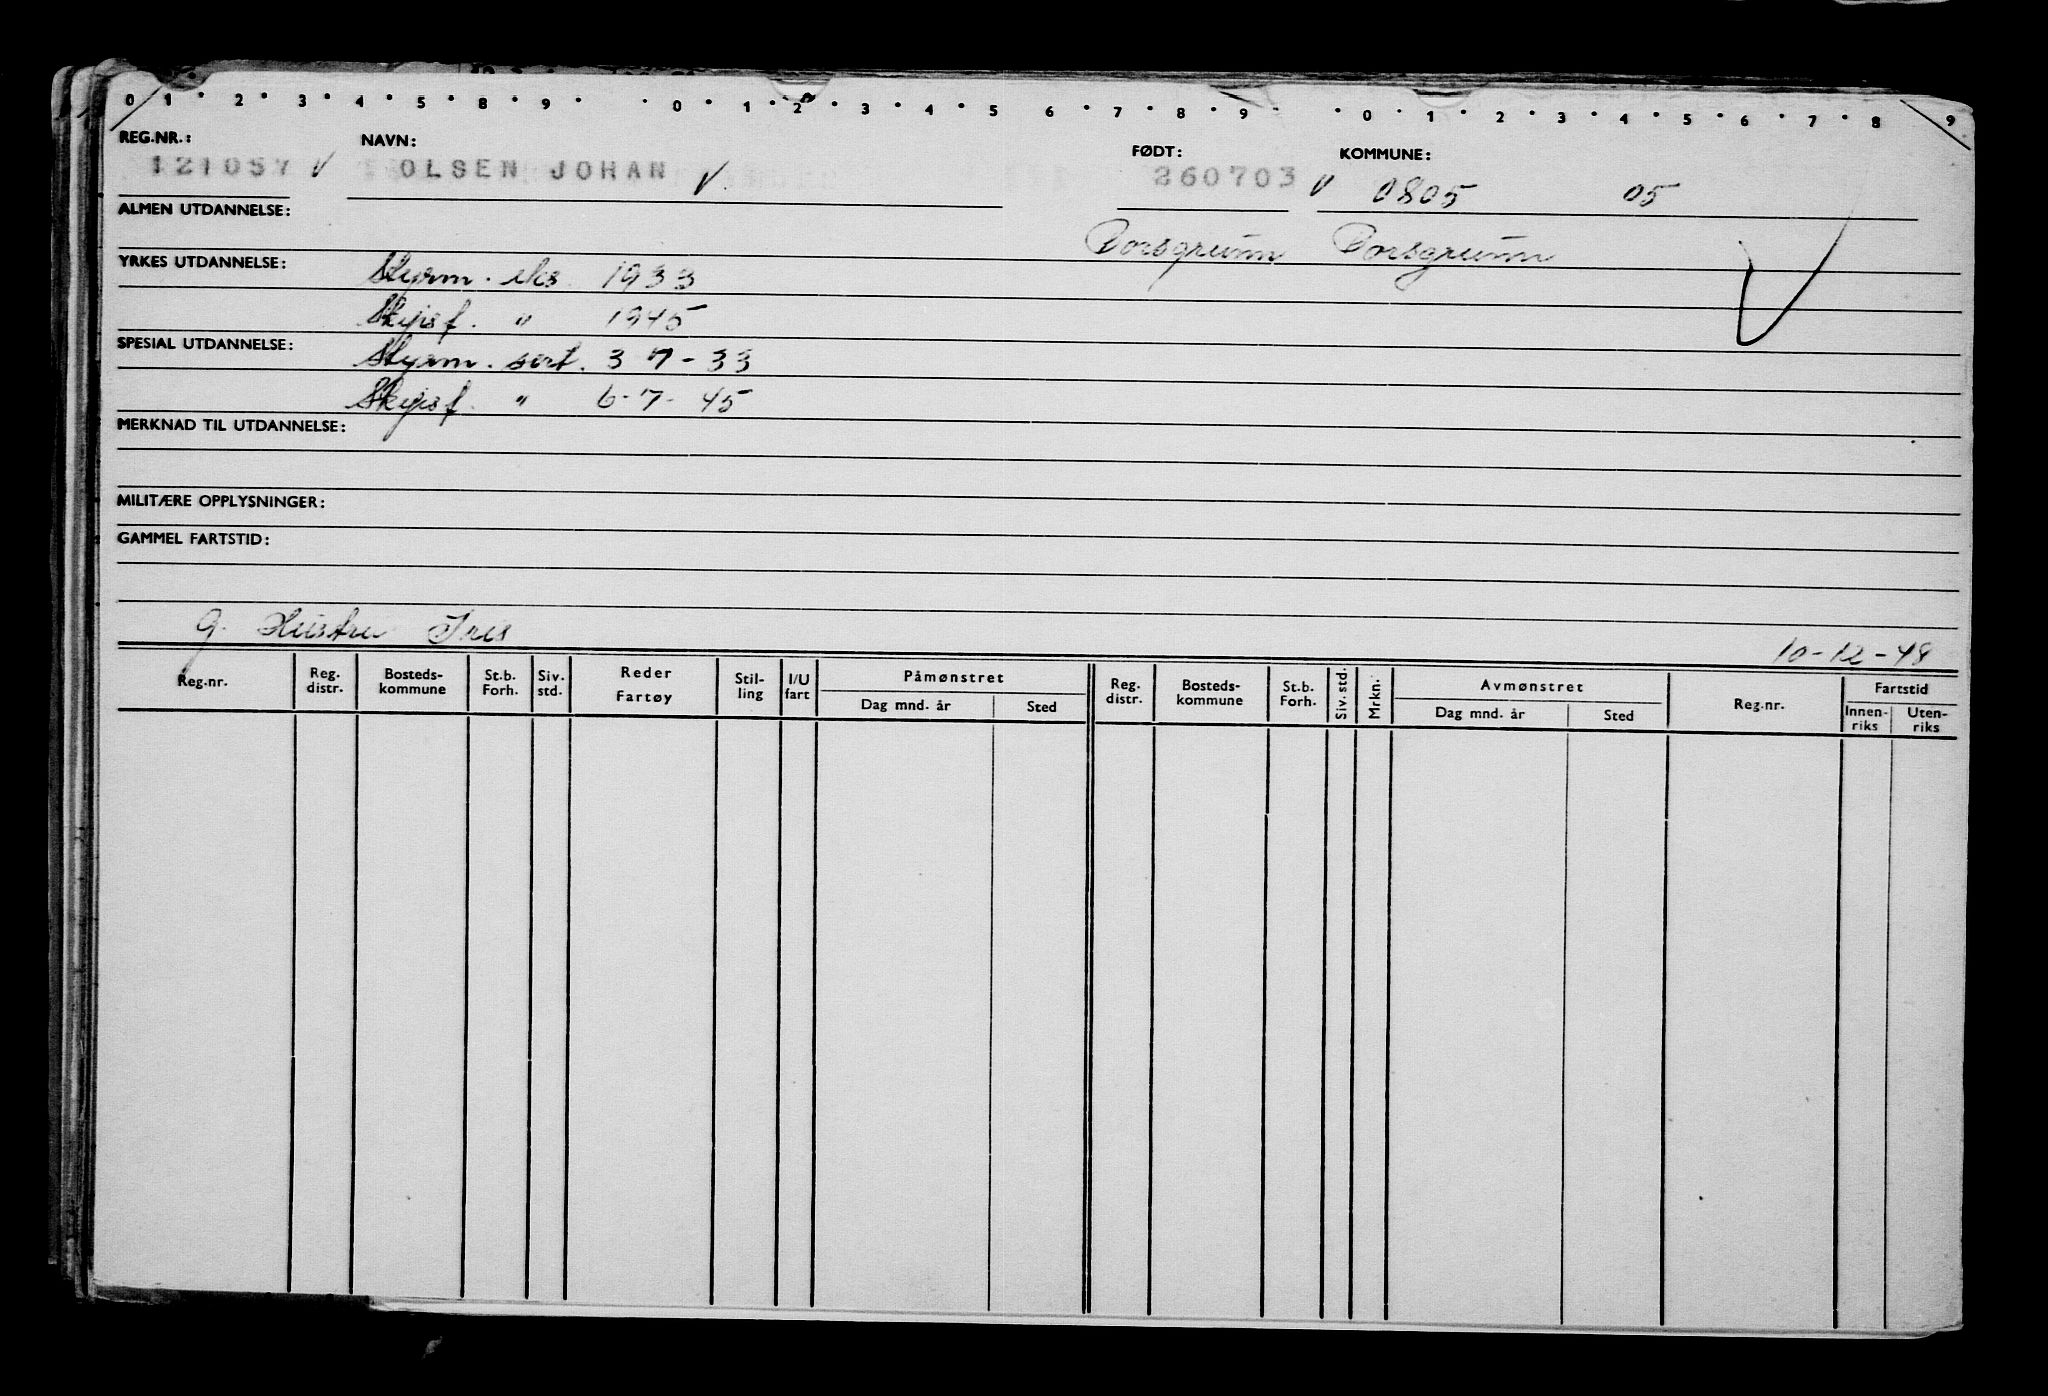 0 1 · 2 · 3 · 4 · 5 · 8 · 9 · · 0 · 1 · 2 · 3 · 4 · 5 6 · 7 · 8 · 9 · · 0 · 1 · 2 · 3 · 4 · 5 · 6 · 7 · 8 9
REG.NR.: NAVN: FØDT: KOMMUNE:
121057 V OLSEN JOHAN V. 260703 V 0805 05
ALMEN UTDANNELSE:
Porsgrunn Porsgrunn
YRKES UTDANNELSE: Styrm. eks. 1933
Skipsf. " 1945
SPESIAL UTDANNELSE: Styrm. sert. 3 7-33
Skipsf. " 6-7-45
MERKNAD TIL UTDANNELSE:
MILITÆRE OPPLYSNINGER:
GAMMEL FARTSTID:
G. Hustru Iris 10-12-48
Reg.nr. Reg. distr. Bosteds-kommune St.b. Forh. Siv. std. Reder Fartøy Stil-ling I/U fart Påmønstret Dag mnd. år Sted Reg. distr. Bosteds-kommune St.b. Forh. Siv. std. Mrkn. Avmønstret Dag mnd. år Sted Reg.nr. Fartstid Innen-riks Uten-riks